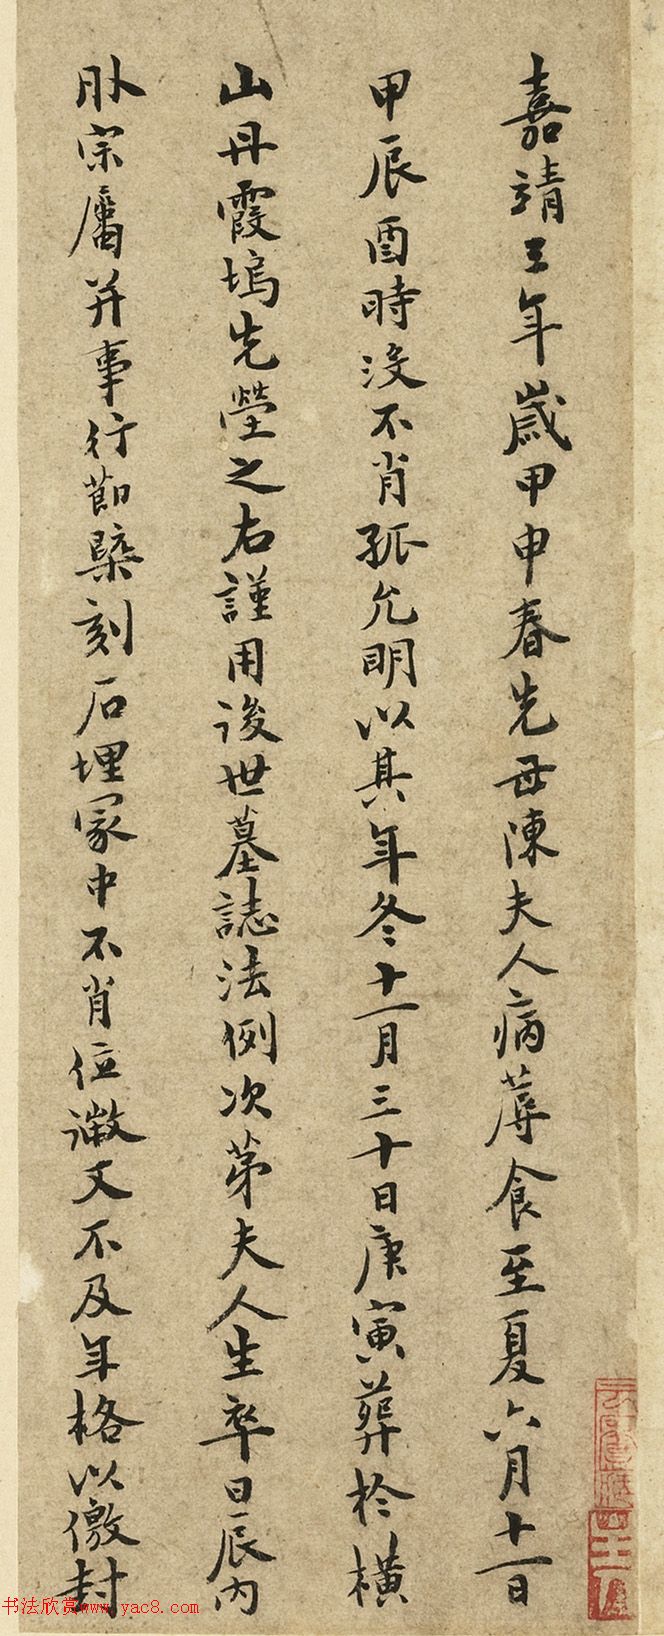 嘉靖三年歲甲申春先母陳夫人病蓐食至夏六月十一日
甲辰酉時沒不肖孤允明以其年冬十一月三十日庚寅葬於橫
山丹霞塢先塋之右謹用後世墓誌法例次第夫人生卒日辰內
外宗屬并事行節槩刻石埋冢中不肖位微文不及年格以儌封
书法欣赏www.yac8.com